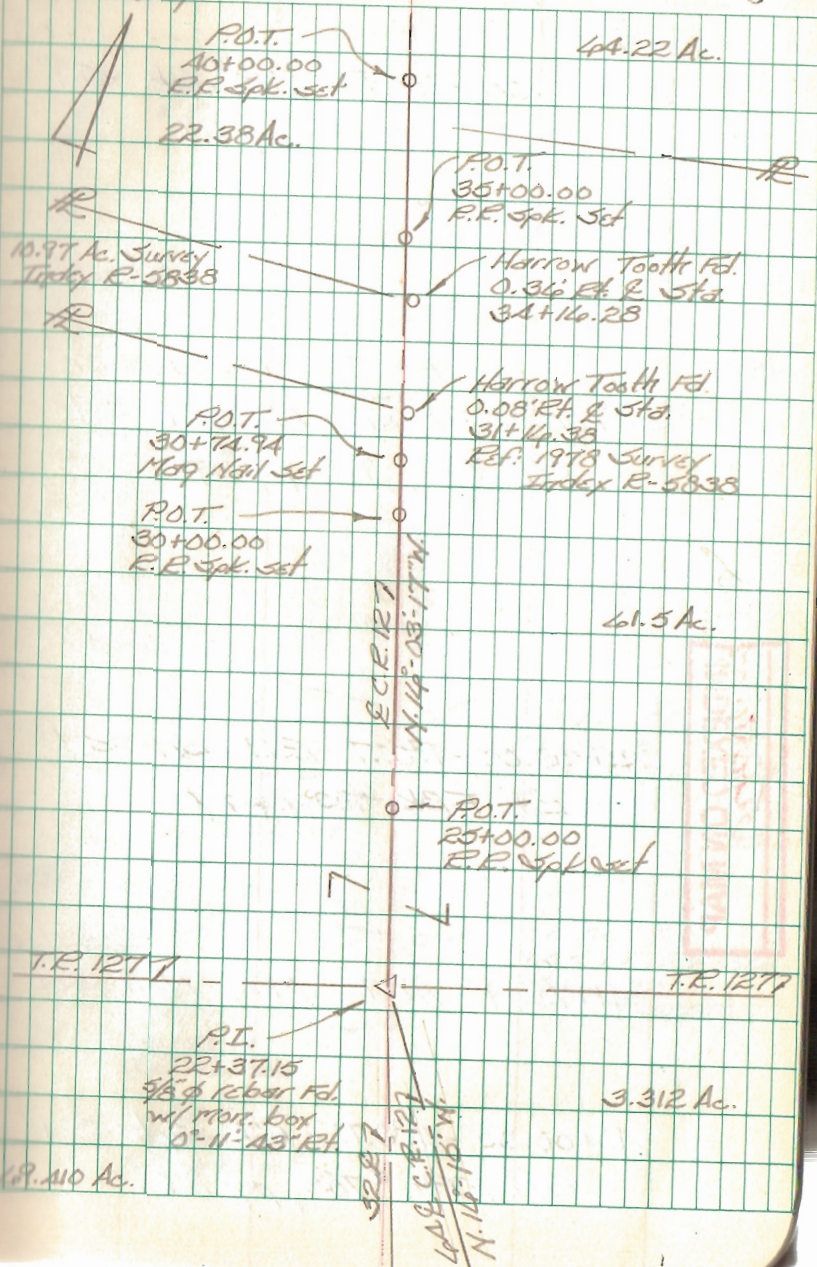 P.O.T.
40+00.00
R.R. Spk. Set
64.22 Ac.
22.38 Ac.
P.O.T.
35+00.00
R.R. Spk. Set
PL
PL
10.97 Ac. Survey
Index R-5838
Harrow Tooth Fd.
0.36' Rt. ℄ Sta.
34+16.28
PL
Harrow Tooth Fd.
0.08' Rt. ℄ Sta.
31+16.38
Ref: 1978 Survey
Index R-5838
P.O.T.
30+74.94
Mag Nail Set
P.O.T.
30+00.00
R.R. Spk. Set
℄ C.R. 127
N. 16°-03'-17" W.
61.5 Ac.
P.O.T.
25+00.00
R.R. Spk. Set
T.R. 127
T.R. 127
P.I.
22+37.15
5/8" φ rebar Fd.
w/ mon. box
0°-11'-43" Rt.
3.312 Ac.
℄ C.R. 127